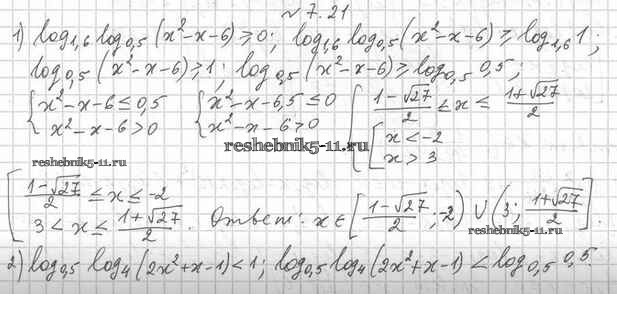 № 7.21
1) log₁,₆ log₀,₅ (x²-x-6) ≥ 0; log₁,₆ log₀,₅ (x²-x-6) ≥ log₁,₆ 1;
log₀,₅ (x²-x-6) ≥ 1; log₀,₅ (x²-x-6) ≥ log₀,₅ 0,5;
{ x²-x-6 ≤ 0,5 { x²-x-6,5 ≤ 0 { (1-√27)/2 ≤ x ≤ (1+√27)/2
x²-x-6 > 0 x²-x-6 > 0 [ x < -2
x > 3
reshebnik5-11.ru
reshebnik5-11.ru
[ (1-√27)/2 ≤ x ≤ -2
3 < x ≤ (1+√27)/2. Ответ: x ∈ [(1-√27)/2; -2) ∪ (3; (1+√27)/2].
reshebnik5-11.ru
2) log₀,₅ log₄ (2x²+x-1) < 1; log₀,₅ log₄ (2x²+x-1) < log₀,₅ 0,5.
reshebnik5-11.ru